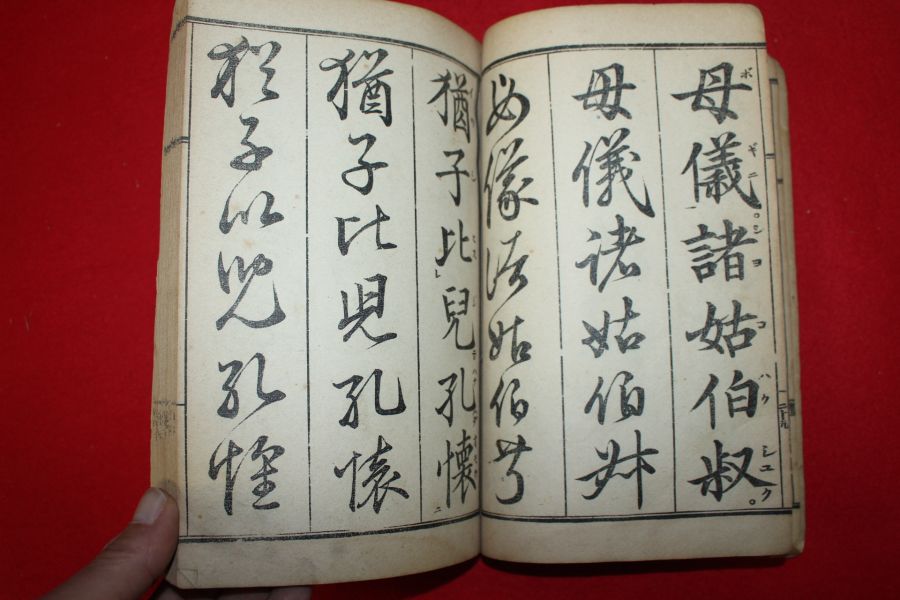 母儀諸姑伯叔
母儀諸姑伯叔
母儀諸姑伯叔
猶子比兒孔懷
猶子比児孔懐
猶子比兒孔懷